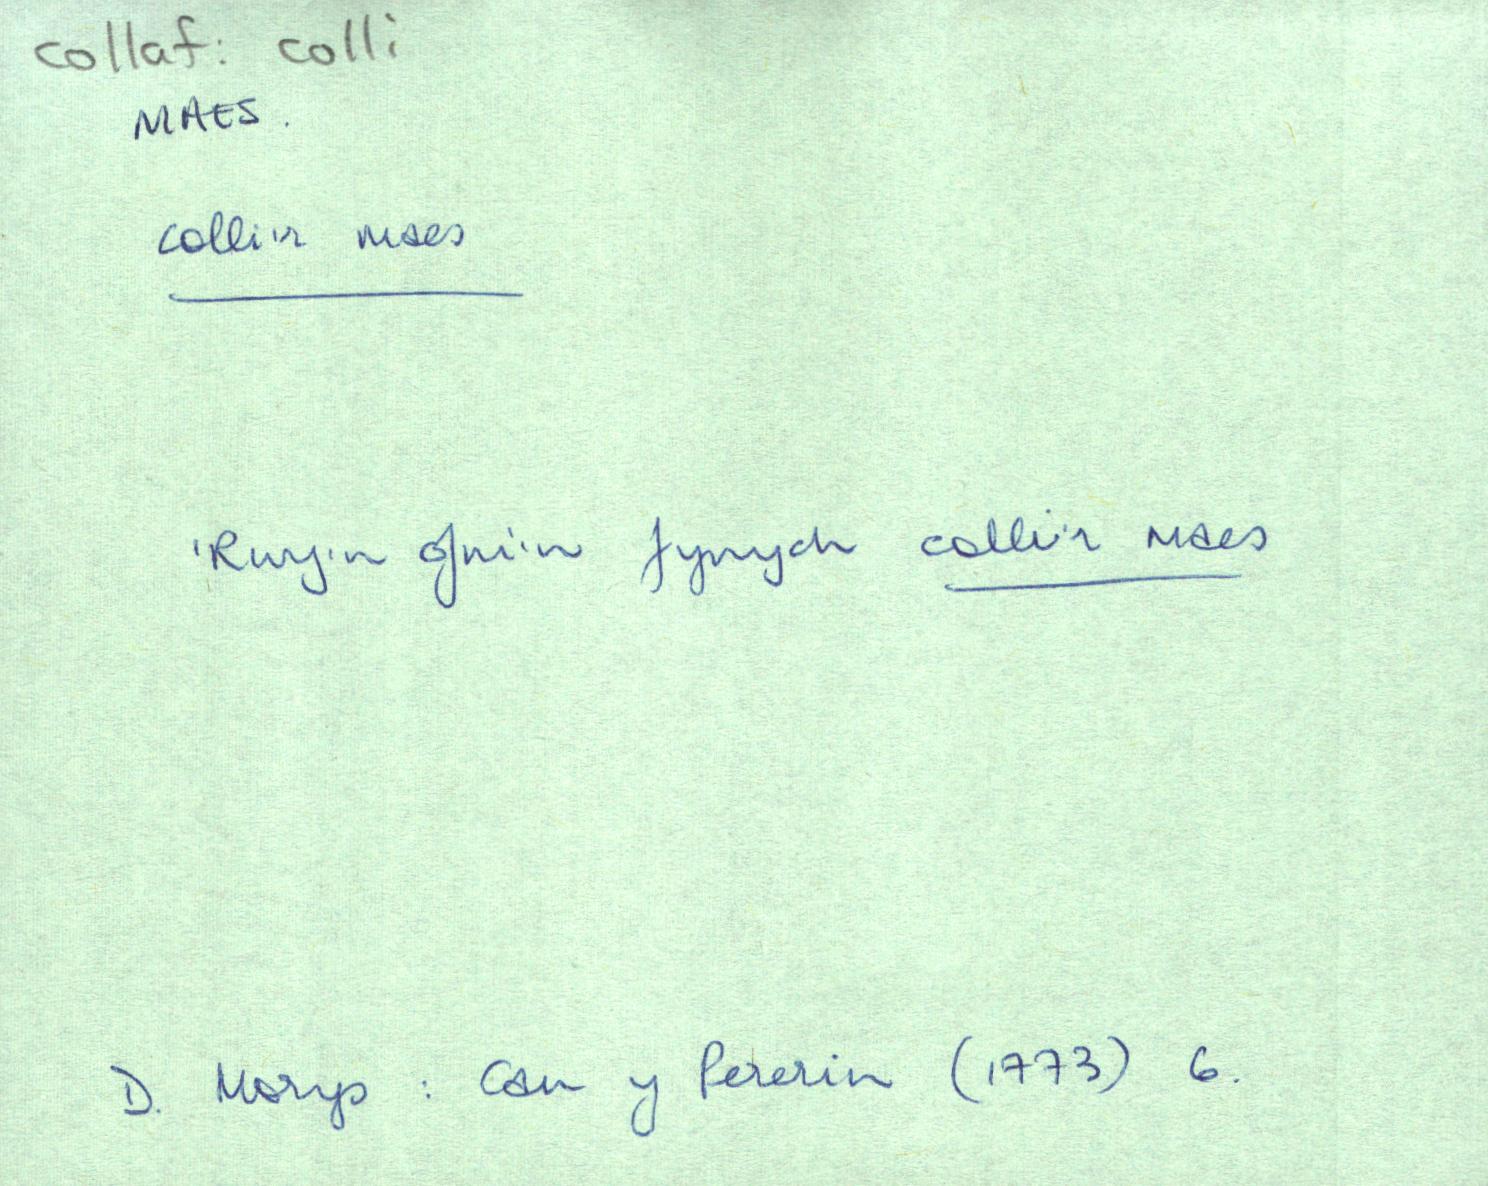 collaf: colli
MAES.
colli'r maes
'Rwy'n ofni'n fynych colli'r maes
D. Morys : Can y Pererin (1773) 6.